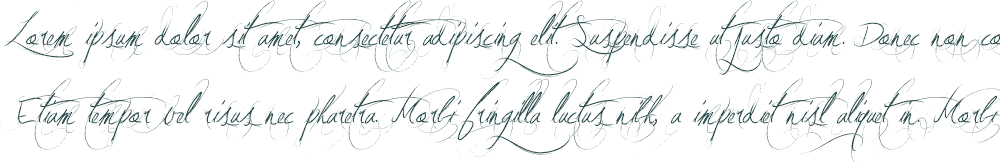 Lorem ipsum dolor sit amet, consectetur adipiscing elit. Suspendisse ut justo diam. Donec non co
Etiam tempor vel risus nec pharetra. Morbi fringilla luctus nibh, a imperdiet nisl aliquet in. Morbi